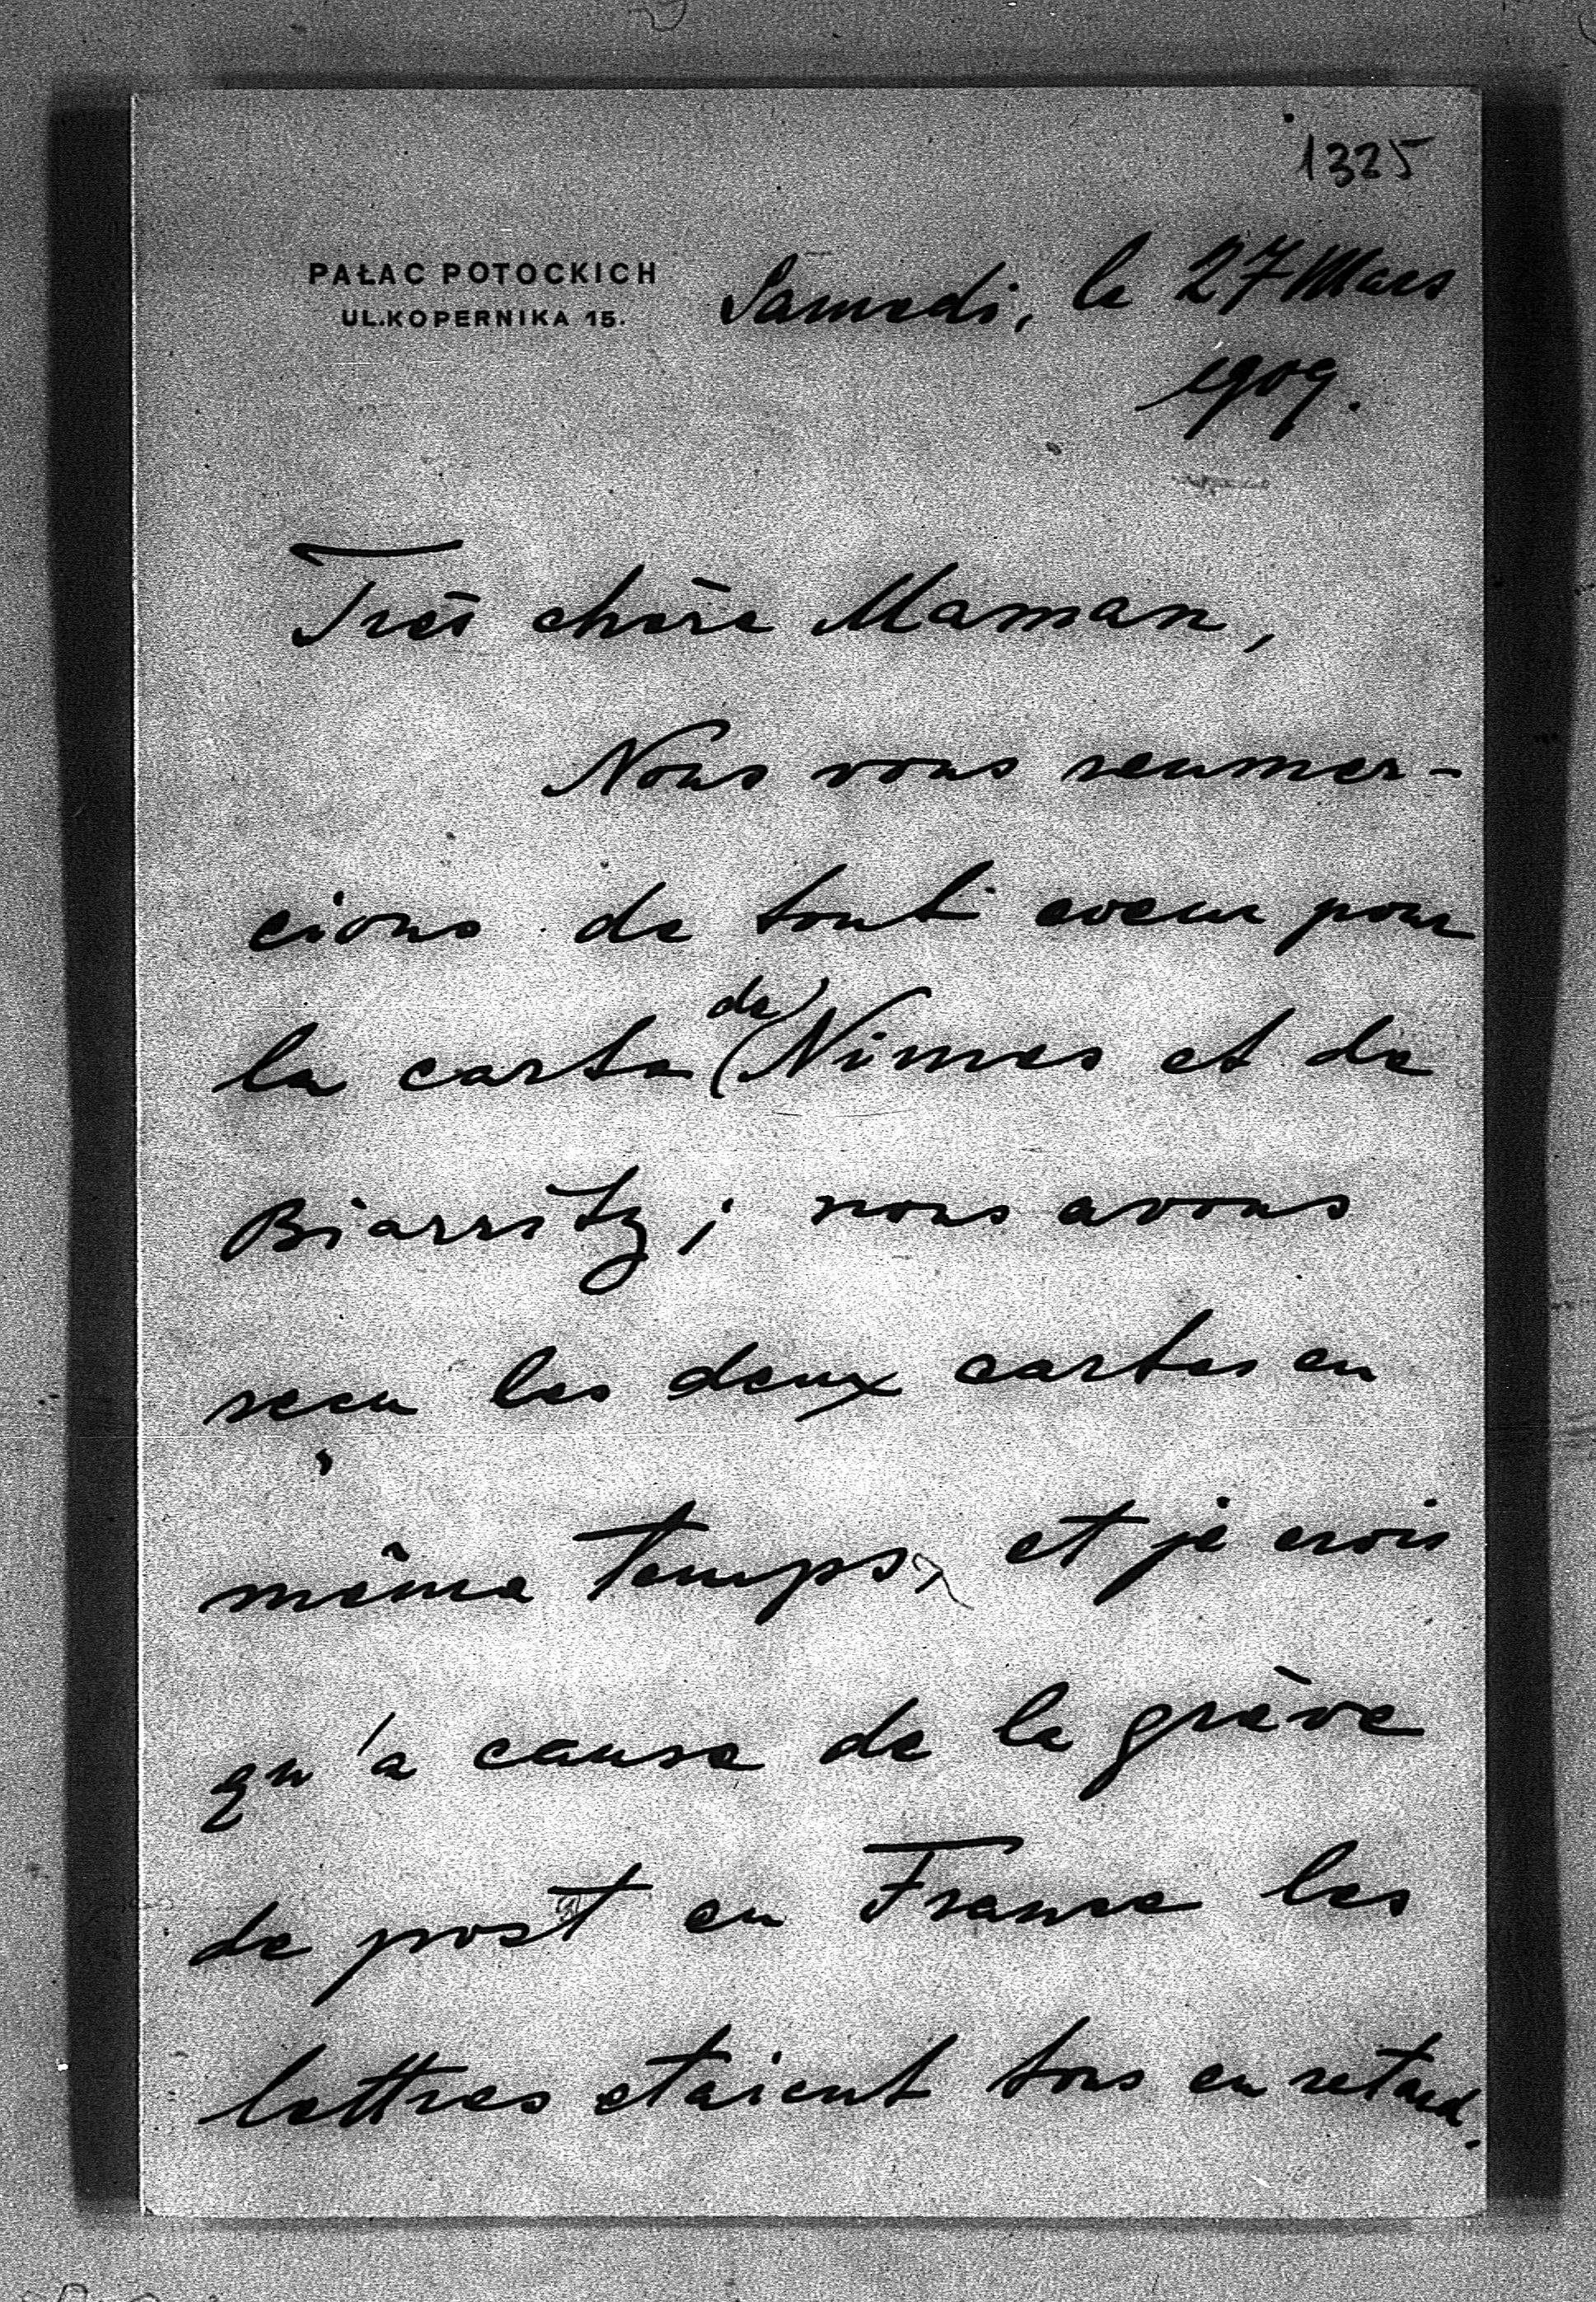 1325
PAŁAC POTOCKICH
UL.KOPERNIKA 15.
Samedi, le 27 Mars
1909.
Très chère Maman,
Nous vous remmer-
cions de tout coeur pour
la carte de Nimes et de
Biarritz; nous avons
reçu les deux cartes en
même temps, et je crois
qu'a cause de la grève
de post en France les
lettres etaient tous en retard.